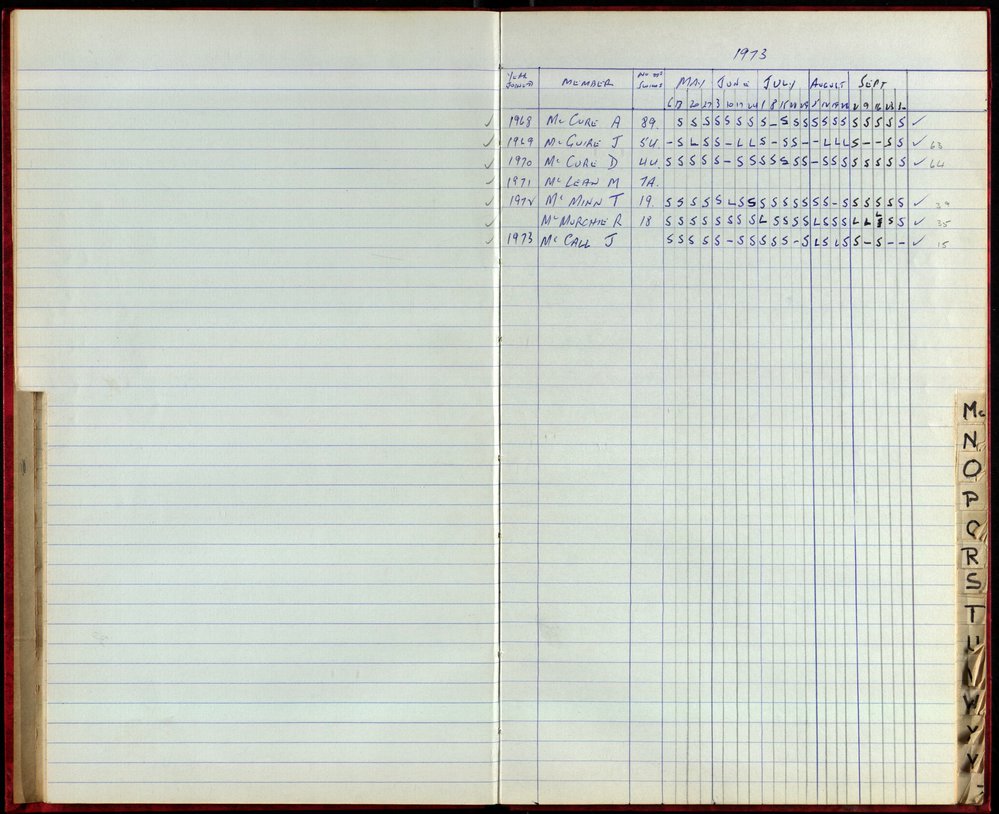 1973
YEAR JOINED MEMBER No OF SWIMS MAY JUNE JULY AUGUST SEPT
6 13 20 27 3 10 17 24 1 8 15 22 29 5 12 19 26 2 9 16 23 30
✓ 1968 Mc CURE A 89. S S S S S S S S S - S S S S S S S S S S S S ✓
✓ 1969 Mc GUIRE J 54. - S L S S - L L S - S S - - L L L S - - S S ✓ 63
✓ 1970 Mc CURE D 44. S S S S S - S S S S S S S - S S S S S S S S ✓ 64
✓ 1971 Mc LEAN M 7A.
✓ 1972 Mc MINN T 19. S S S S S L S S S S S S S S S - S S S S S S ✓ 39
✓ Mc MURCHIE R 18 S S S S S S S S L S S S S L S S S L L L S S ✓ 35
✓ 1973 Mc CALL J S S S S S - S S S S S - S L S L S S - S - - ✓ 15
Mc
N
O
P
Q
R
S
T
U
W
Y